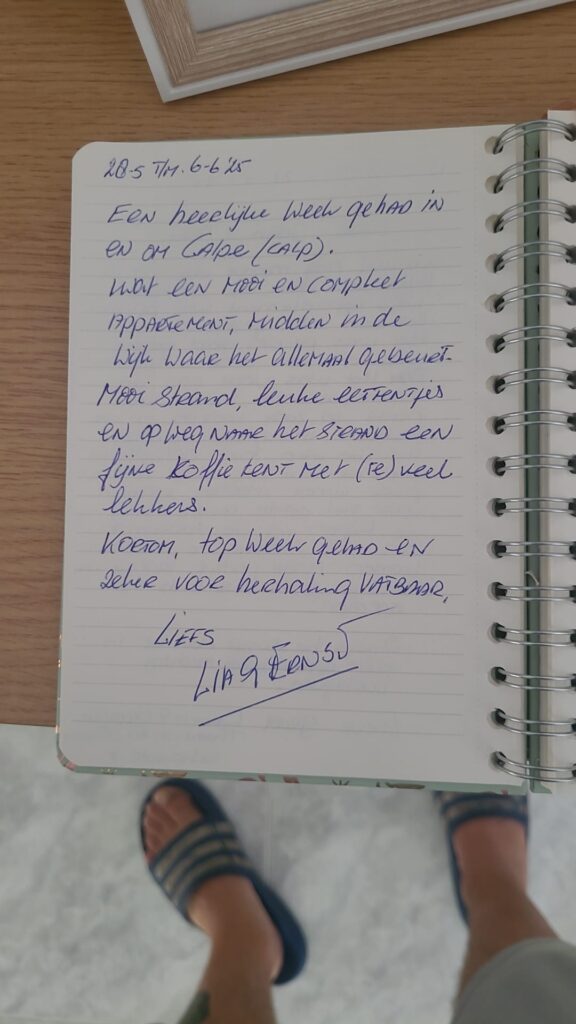 28-5 T/M. 6-6'25
Een heerlijke week gehad in
en om Calpe (CALP).
Wat een mooi en compleet
Appartement, midden in de
wijk waar het allemaal gebeurt.
Mooi strand, leuke eettentjes
en op weg naar het strand een
fijne koffie tent met (te) veel
lekkers.
Kortom, top week gehad en
zeker voor herhaling vatbaar,
Liefs
Lia & Ernst